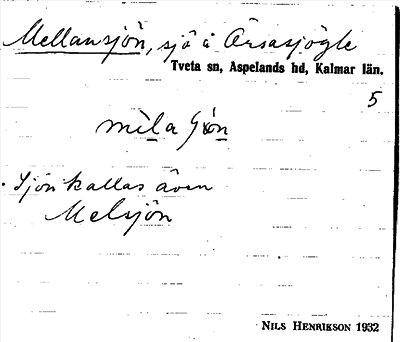 Mellansjön, sjö å Örsasjögle
Tveta sn, Aspelands hd, Kalmar län.
5
Sjön kallas även
Melsjön
NILS HENRIKSON 1932